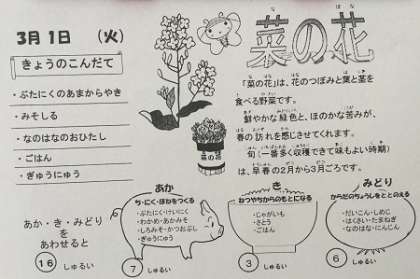 3月1日 （火）
きょうのこんだて
・ぶたにくのあまからやき
・みそしる
・なのはなのおひたし
・ごはん
・ぎゅうにゅう
菜の花
な はな
「菜の花」は、花のつぼみと葉と茎を
食べる野菜です。
鮮やかな緑色と、ほのかな苦みが、
春の訪れを感じさせてくれます。
旬（一番多く収穫できて味もよい時期）
は、早春の2月から3月ごろです。
菜の花
あか・き・みどり
を
あわせると
16 しゅるい
あか
ち・にく・ほねをつくる
・ぶたにく・けいにく
・わかめ・あかみそ
・しろみそ・かつおぶし
・ぎゅうにゅう
7 しゅるい
き
ねつやちからのもとになる
・じゃがいも
・さとう
・ごはん
3 しゅるい
みどり
からだのちょうしをととのえる
・だいこん・しめじ
・はくさい・たまねぎ
・なのはな・にんじん
6 しゅるい